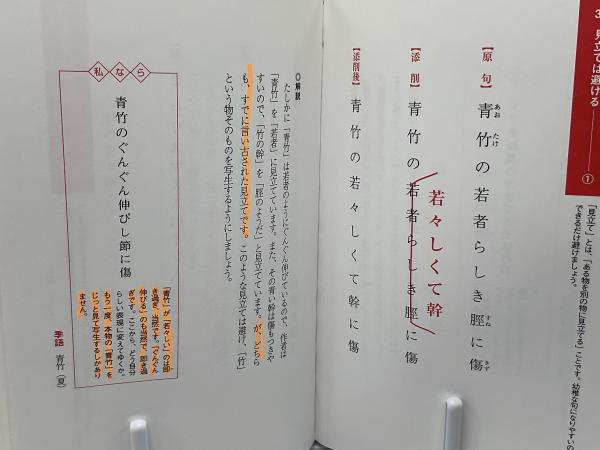 3 見立ては避ける――①
「見立て」とは、「ある物を別の物に見立てる」ことです。幼稚な句になりやすいの
できるだけ避けましょう。
【原句】 青竹の若者らしき脛に傷
あお たけ すね きず
【添削】 青竹の若者らしき脛に傷
若々しくて幹
【添削後】 青竹の若々しくて幹に傷
◎解説
たしかに「青竹」は若者のようにぐんぐん伸びているので、作者は
「青竹」を「若者」に見立てています。また、その青い幹は傷もつきや
すいので、「竹の幹」を「脛のようだ」と見立てています。が、どちら
も、すでに言い古された見立てです。このような見立ては避け、「竹」
という物そのものを写生するようにしましょう。
私なら
青竹のぐんぐん伸びし節に傷
「青竹」が「若々しい」のは即
き過ぎ、当然です。「ぐんぐん
伸びる」のも当然で、即き過
ぎです。ここから、どう自分
らしい表現に変えてゆくか。
もう一度、本物の「青竹」を
じっと見て写生するしかあり
ません。
季語 青竹(夏)